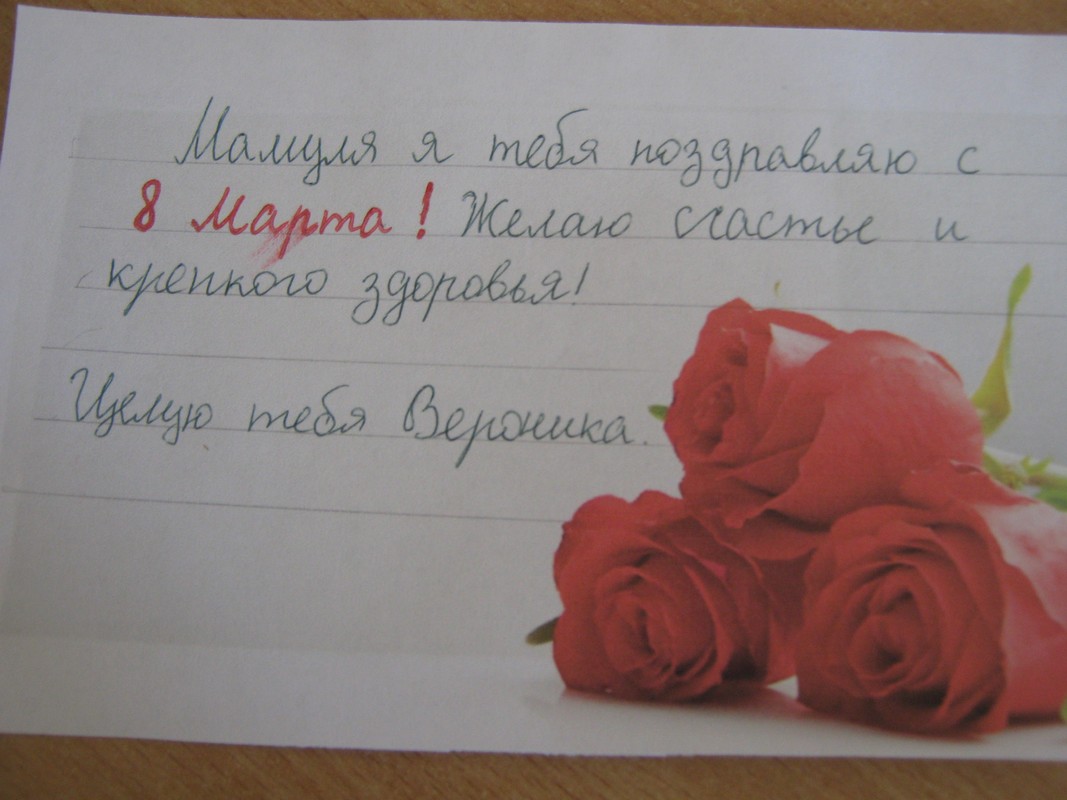 Мамуля я тебя поздравляю с
8 Марта! Желаю счастье и
крепкого здоровья!
Целую тебя Вероника.